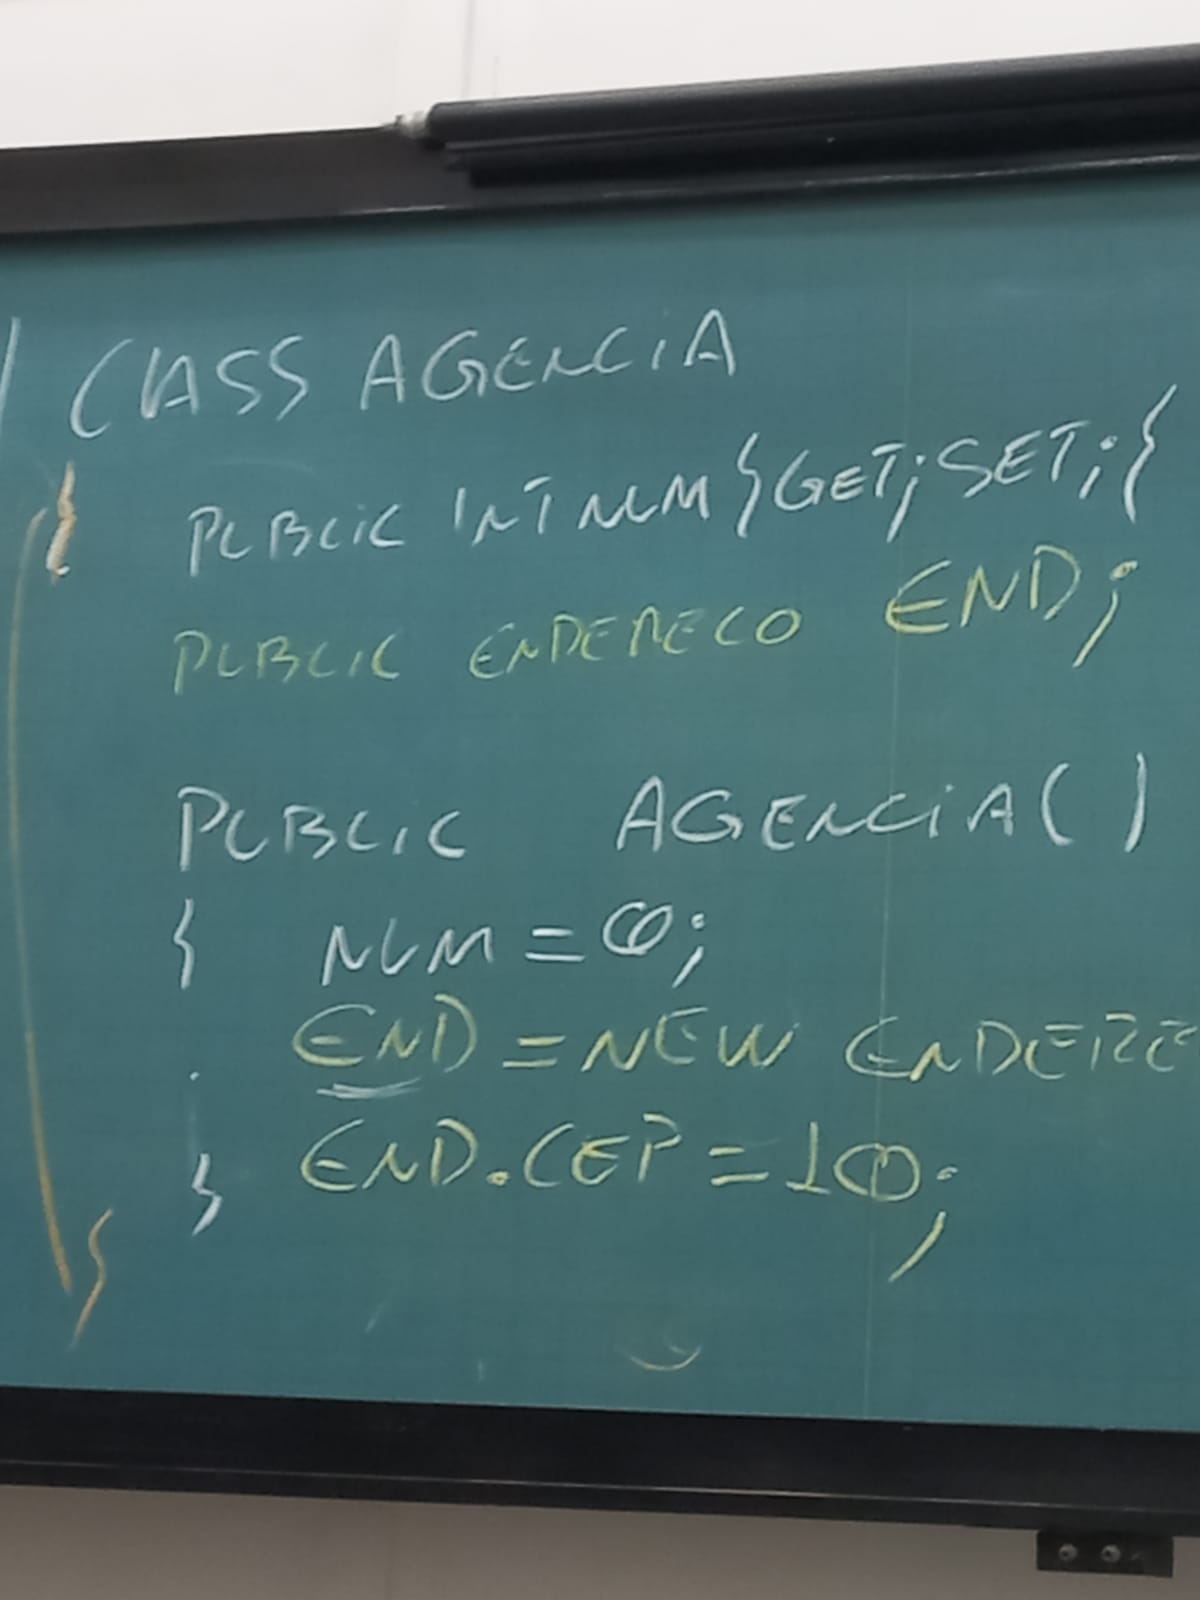 CLASS AGENCIA
{ PUBLIC INT NUM }GET; SET;{
PUBLIC ENDERECO END;
PUBLIC AGENCIA()
{ NUM = 0;
END = NEW ENDERE
} END.CEP = 10;
}